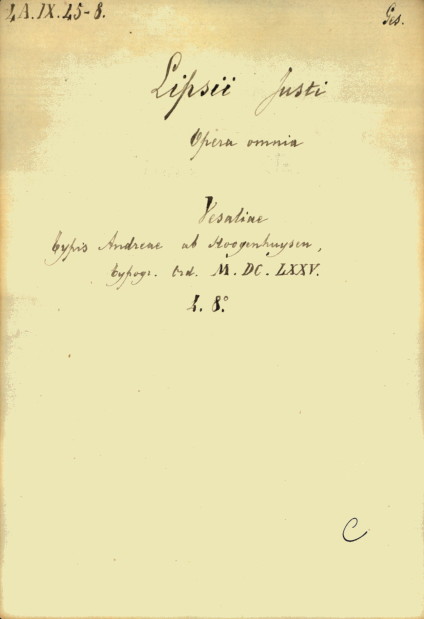 4A.IX.45-8. Ges.
Lipsii Justi
Opera omnia
Vesaliae
typis Andreae ab Hoogenhuysen,
typogr. Ord. M.DC.LXXV.
4. 8°
C